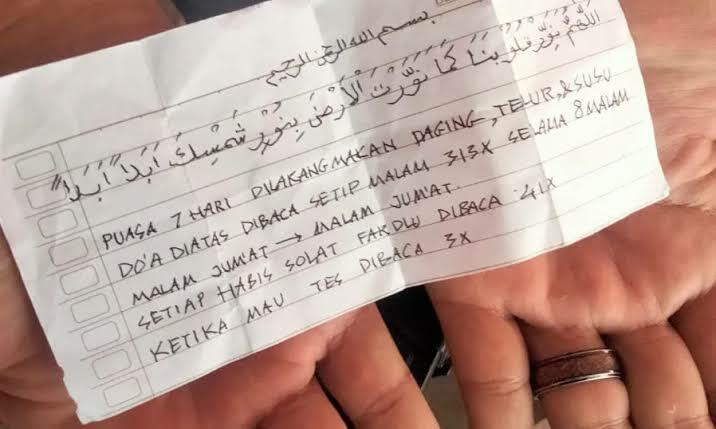 بسم الله الرحمن الرحيم
اَللّٰهُمَّ نَوِّرْ قُلُوْبَنَا كَمَا نَوَّرْتَ الْاَرْضَ بِنُوْرِ شَمْسِكَ اَبَدًا اَبَدًا
PUASA 7 HARI DILARANG MAKAN DAGING, TELUR, & SUSU
DO'A DIATAS DIBACA SETIP MALAM 313X SELAMA 8 MALAM
MALAM JUM'AT → MALAM JUM'AT.
SETIAP HABIS SOLAT FARDLU DIBACA 41X
KETIKA MAU TES DIBACA 3X